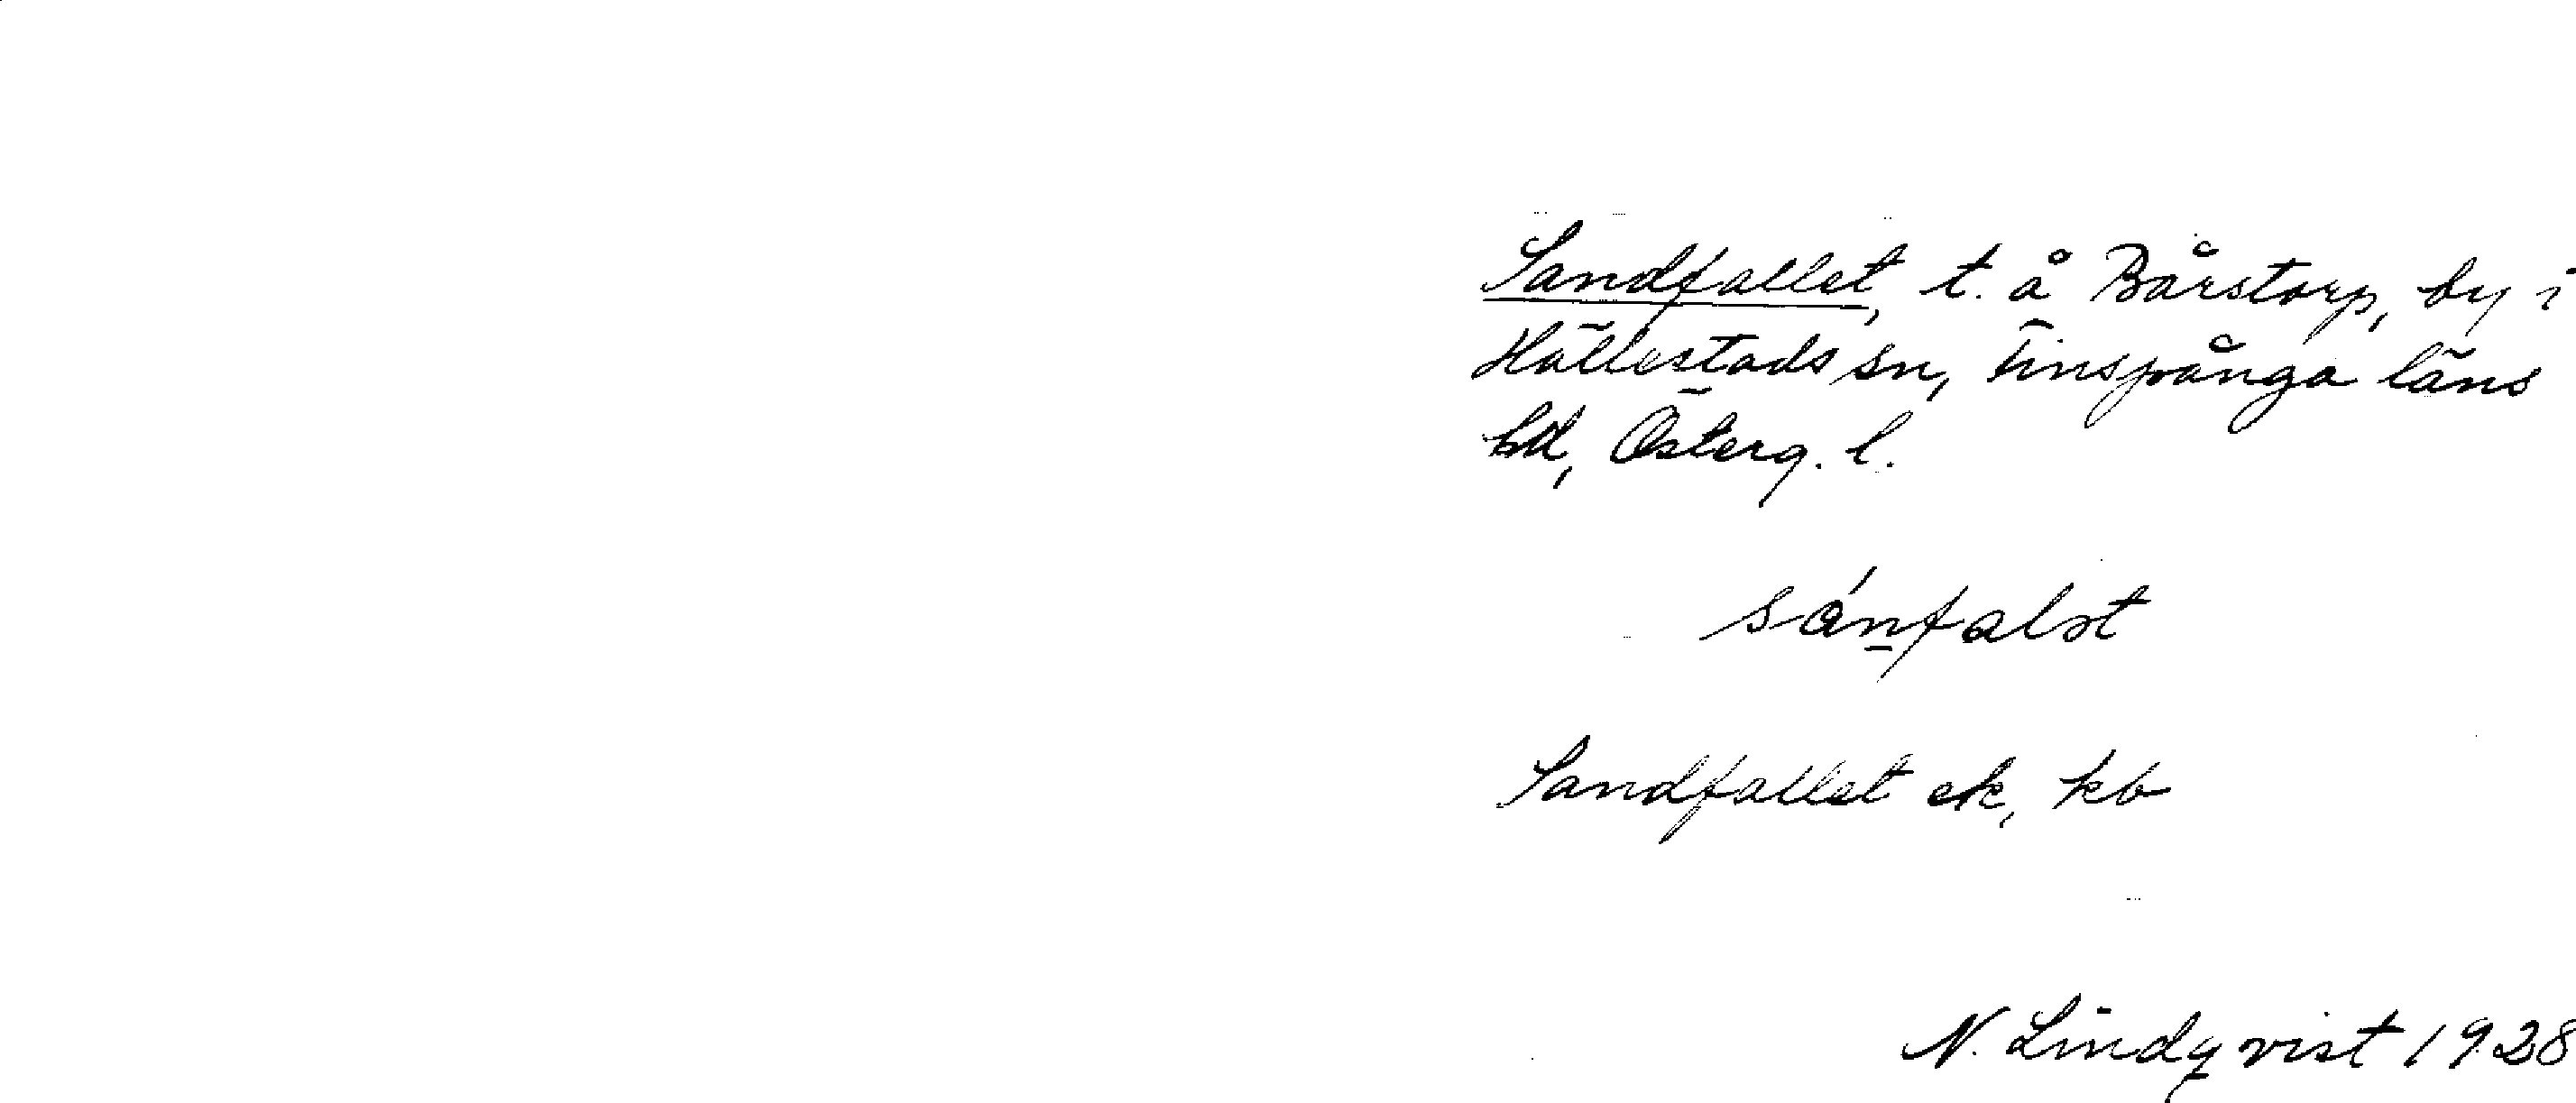 Sandfallet, t. å Bårstorp, by i
Hällestads sn, Finspånga läns
hd, Österg. l.
sánfalət
Sandfallet ek, kb
N. Lindqvist 1928